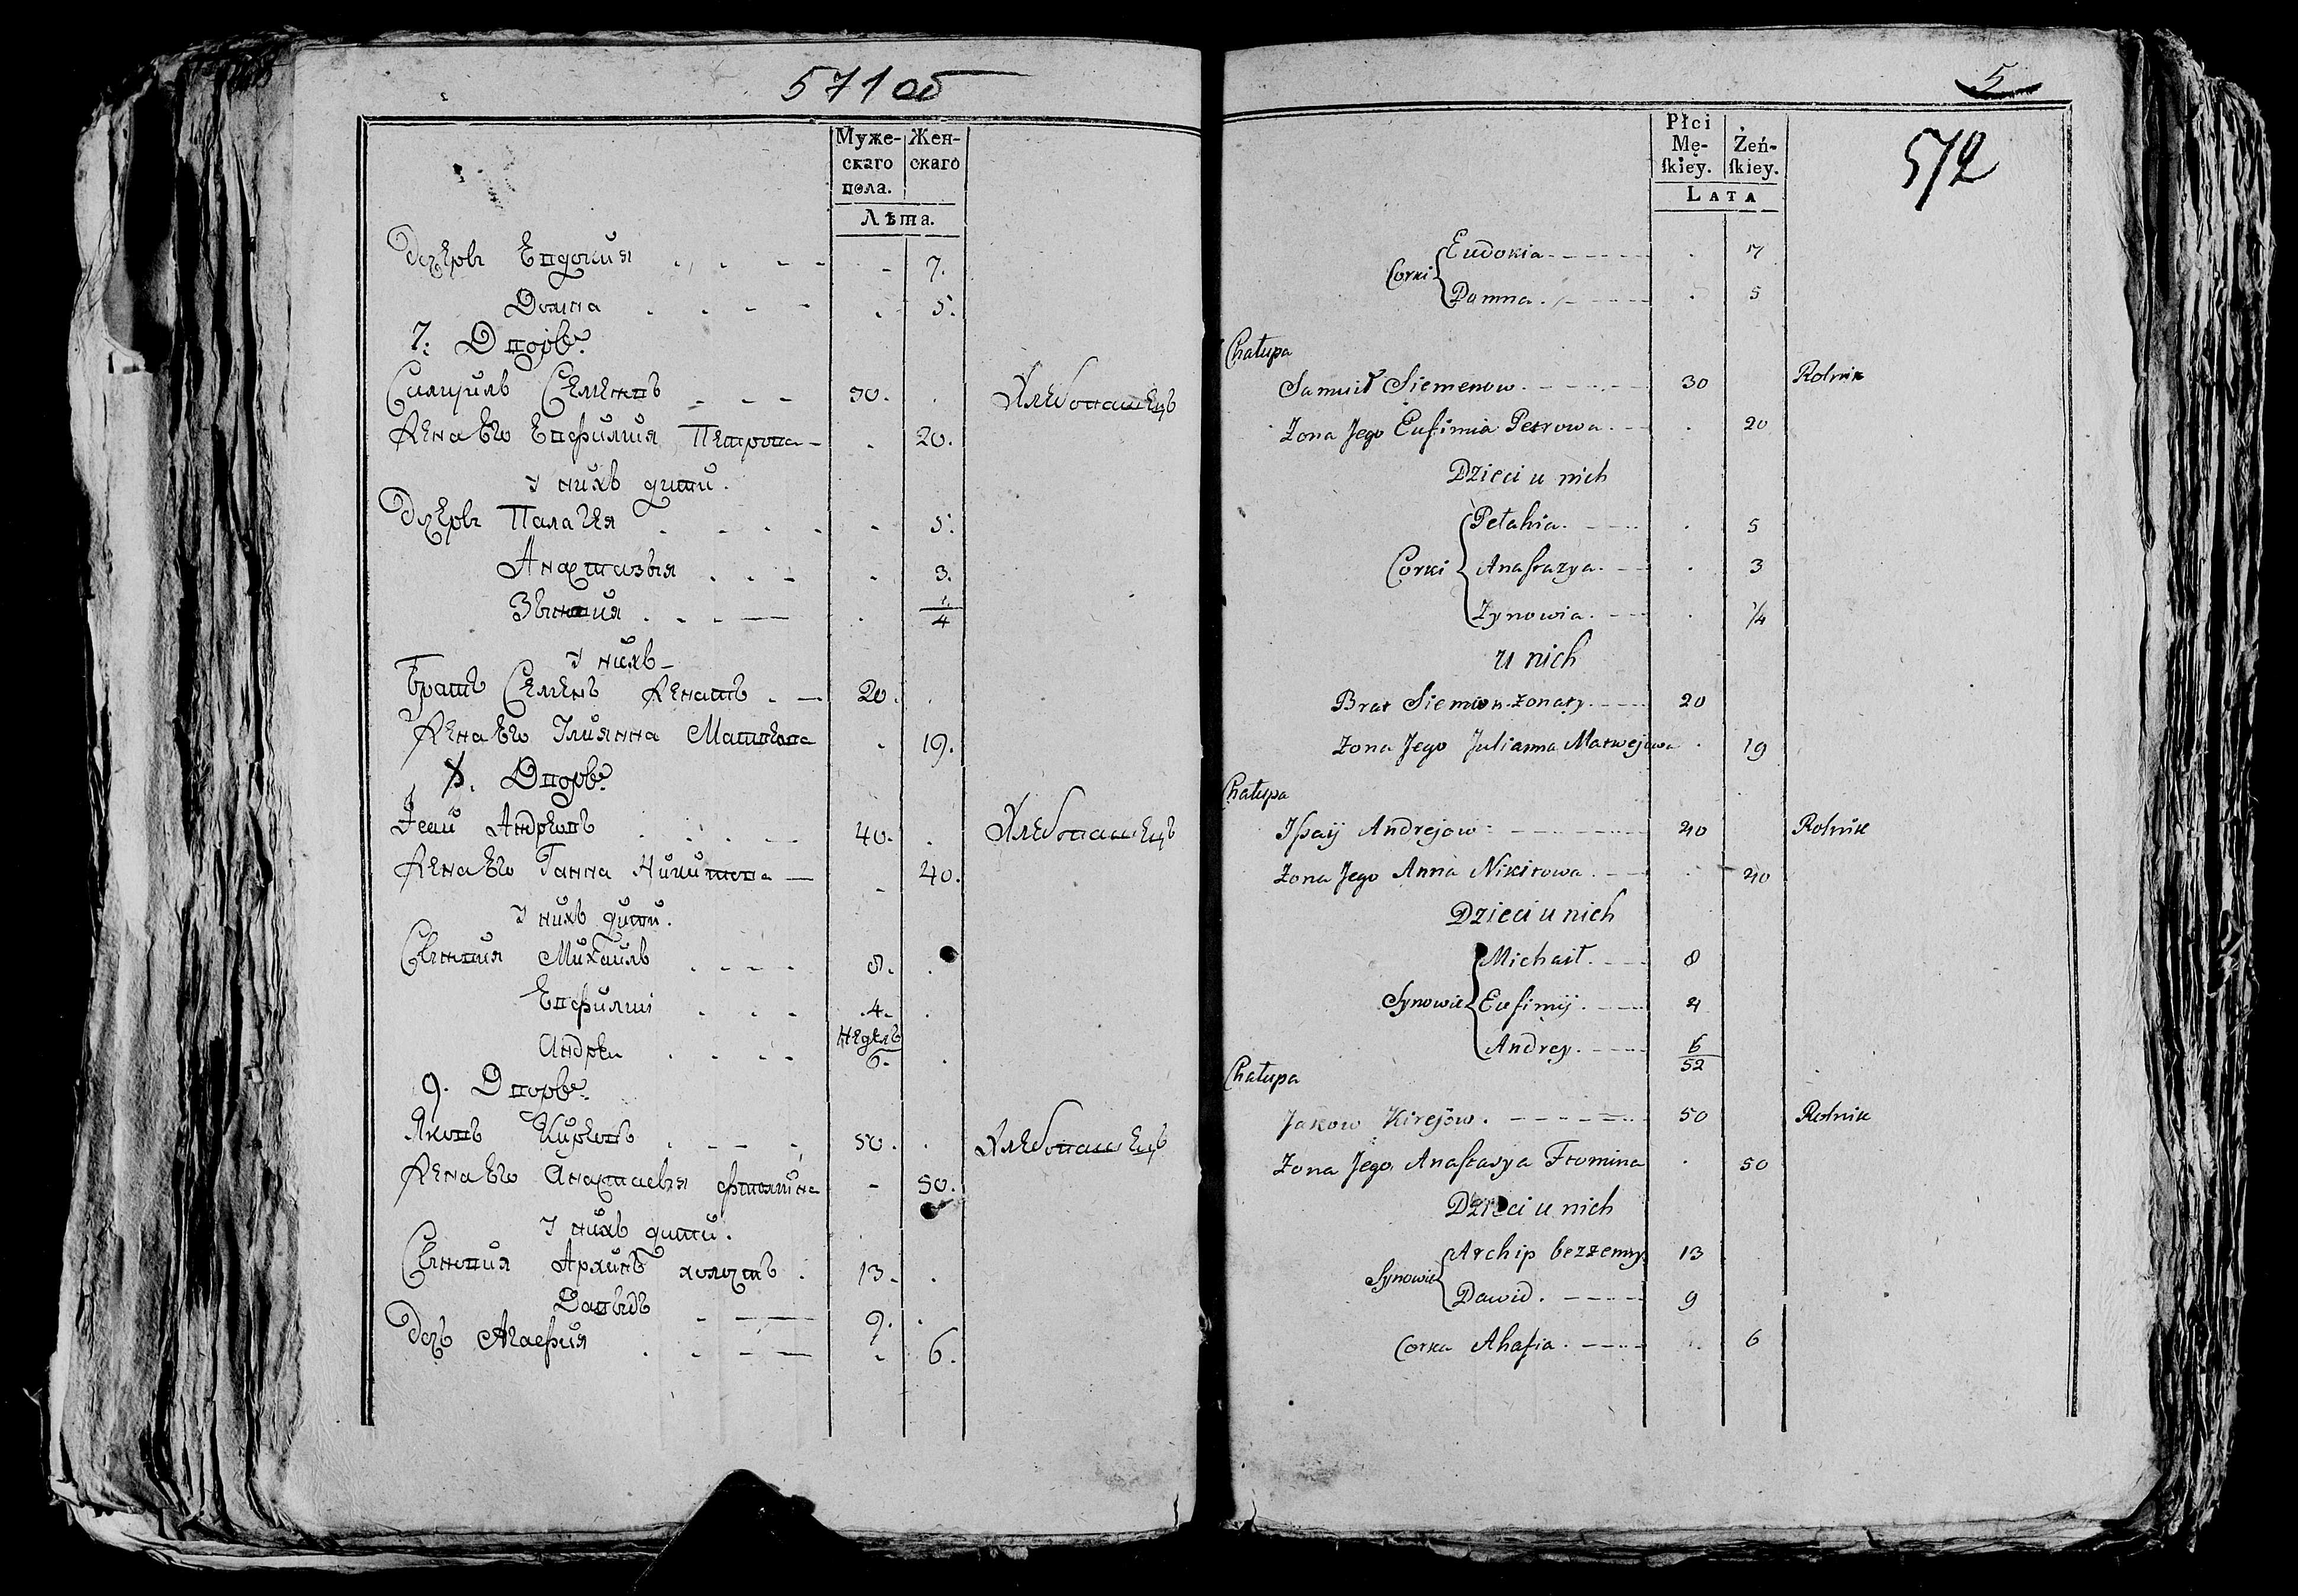 571 об
Муже- Жен-
скаго скаго
пола.
Лѣта.
Дочеръ Евдокия 7.
Домна 5.
7: Дворъ.
Самуилъ Семеновъ 30. Хлебопашецъ
Жена Его Евфимия Петрова 20.
У нихъ дити.
Дочеръ Палагея 5.
Анастазыя 3.
Зѣновия 1/4
У нихъ
Братъ Семенъ Женатъ 20.
Жена Его Улиянна Матвеева 19.
8. Дворъ
Исай Андреевъ 40. Хлебопашецъ
Жена Его Ганна Никитова 40.
У нихъ дити.
Сѣновия Михаилъ 8.
Евфимиі 4.
Андреи Недель 6.
9. Дворъ
Яковъ Киреевъ 50. Хлебопашецъ
Жена Его Анастасыя Фтоміна 50.
У нихъ дити.
Сѣновия Архипъ холостъ 13.
Давыдъ 9.
Дочъ Агафия 6.
5
572
Płci
Mę- Żeń-
ſkiey. ſkiey.
LATA
Corki Eudokia 7
Damna 5
Chałupa
Samuił Siemenow 30 Rolnik
Zona Jego Eufimia Petrowa 20
Dzieci u nich
Pełahia 5
Corki Anaſtazya 3
Zynowia 1/4
u nich
Brat Siemion żonaty 20
Zona Jego Julianna Matwejewa 19
Chałupa
Iſsaij Andrejow 40 Rolnik
Zona Jego Anna Nikitowa 40
Dzieci u nich
Michaił 8
Synowie Eufimij 4
Andrey 6/52
Chałupa
Jakow Kirejów 50 Rolnik
Zona Jego Anaſtasya Ftomina 50
Dzieci u nich
Archip bezżenny 13
Synowie Dawid 9
Corka Ahafia 6